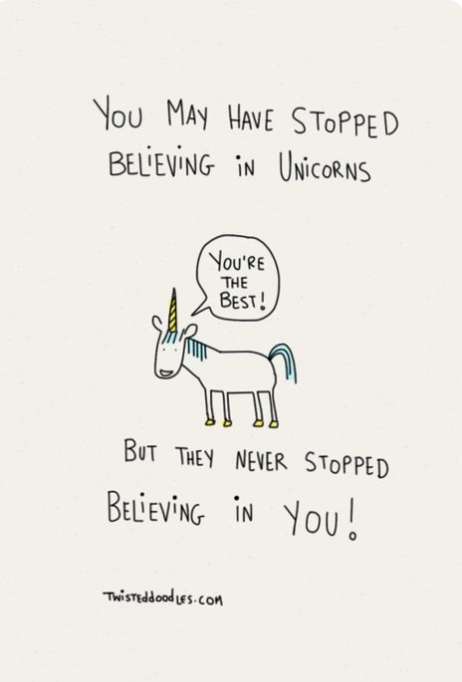 You MAY HAVE STOPPED
BELiEViNG iN UNiCORNS
YOU'RE
THE
BEST!
BUT THEY NEVER STOPPED
BELiEViNG iN YOU!
TWiSTEddOOdLES.COM